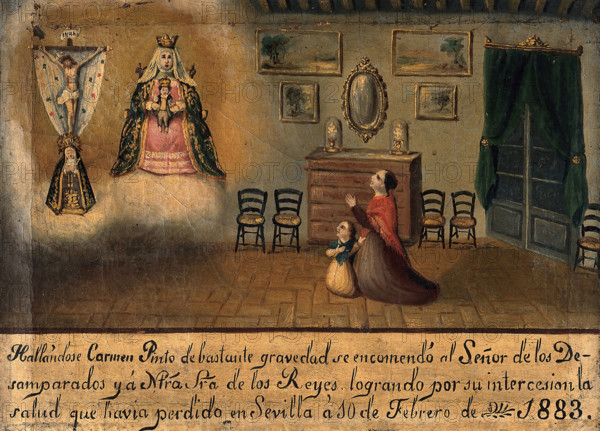 INRI
Hallandose Carmen Pinto de bastante gravedad se encomendó al Señor de los De-
samparados y á Ntrã Srã de los Reyes. logrando por su intercesion la
salud que havia perdido en Sevilla á 10 de Febrero de 1883.